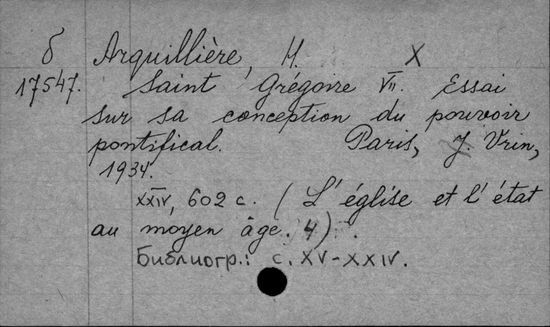 б Arquillière, H. X
17547. Saint Grégoire VII. Essai
sur sa conception du pouvoir
pontifical. Paris, J. Vrin,
1934.
XXIV, 602 c. (L'église et l'état
au moyen âge. 4).
Библиогр.: с. XV-XXIV.